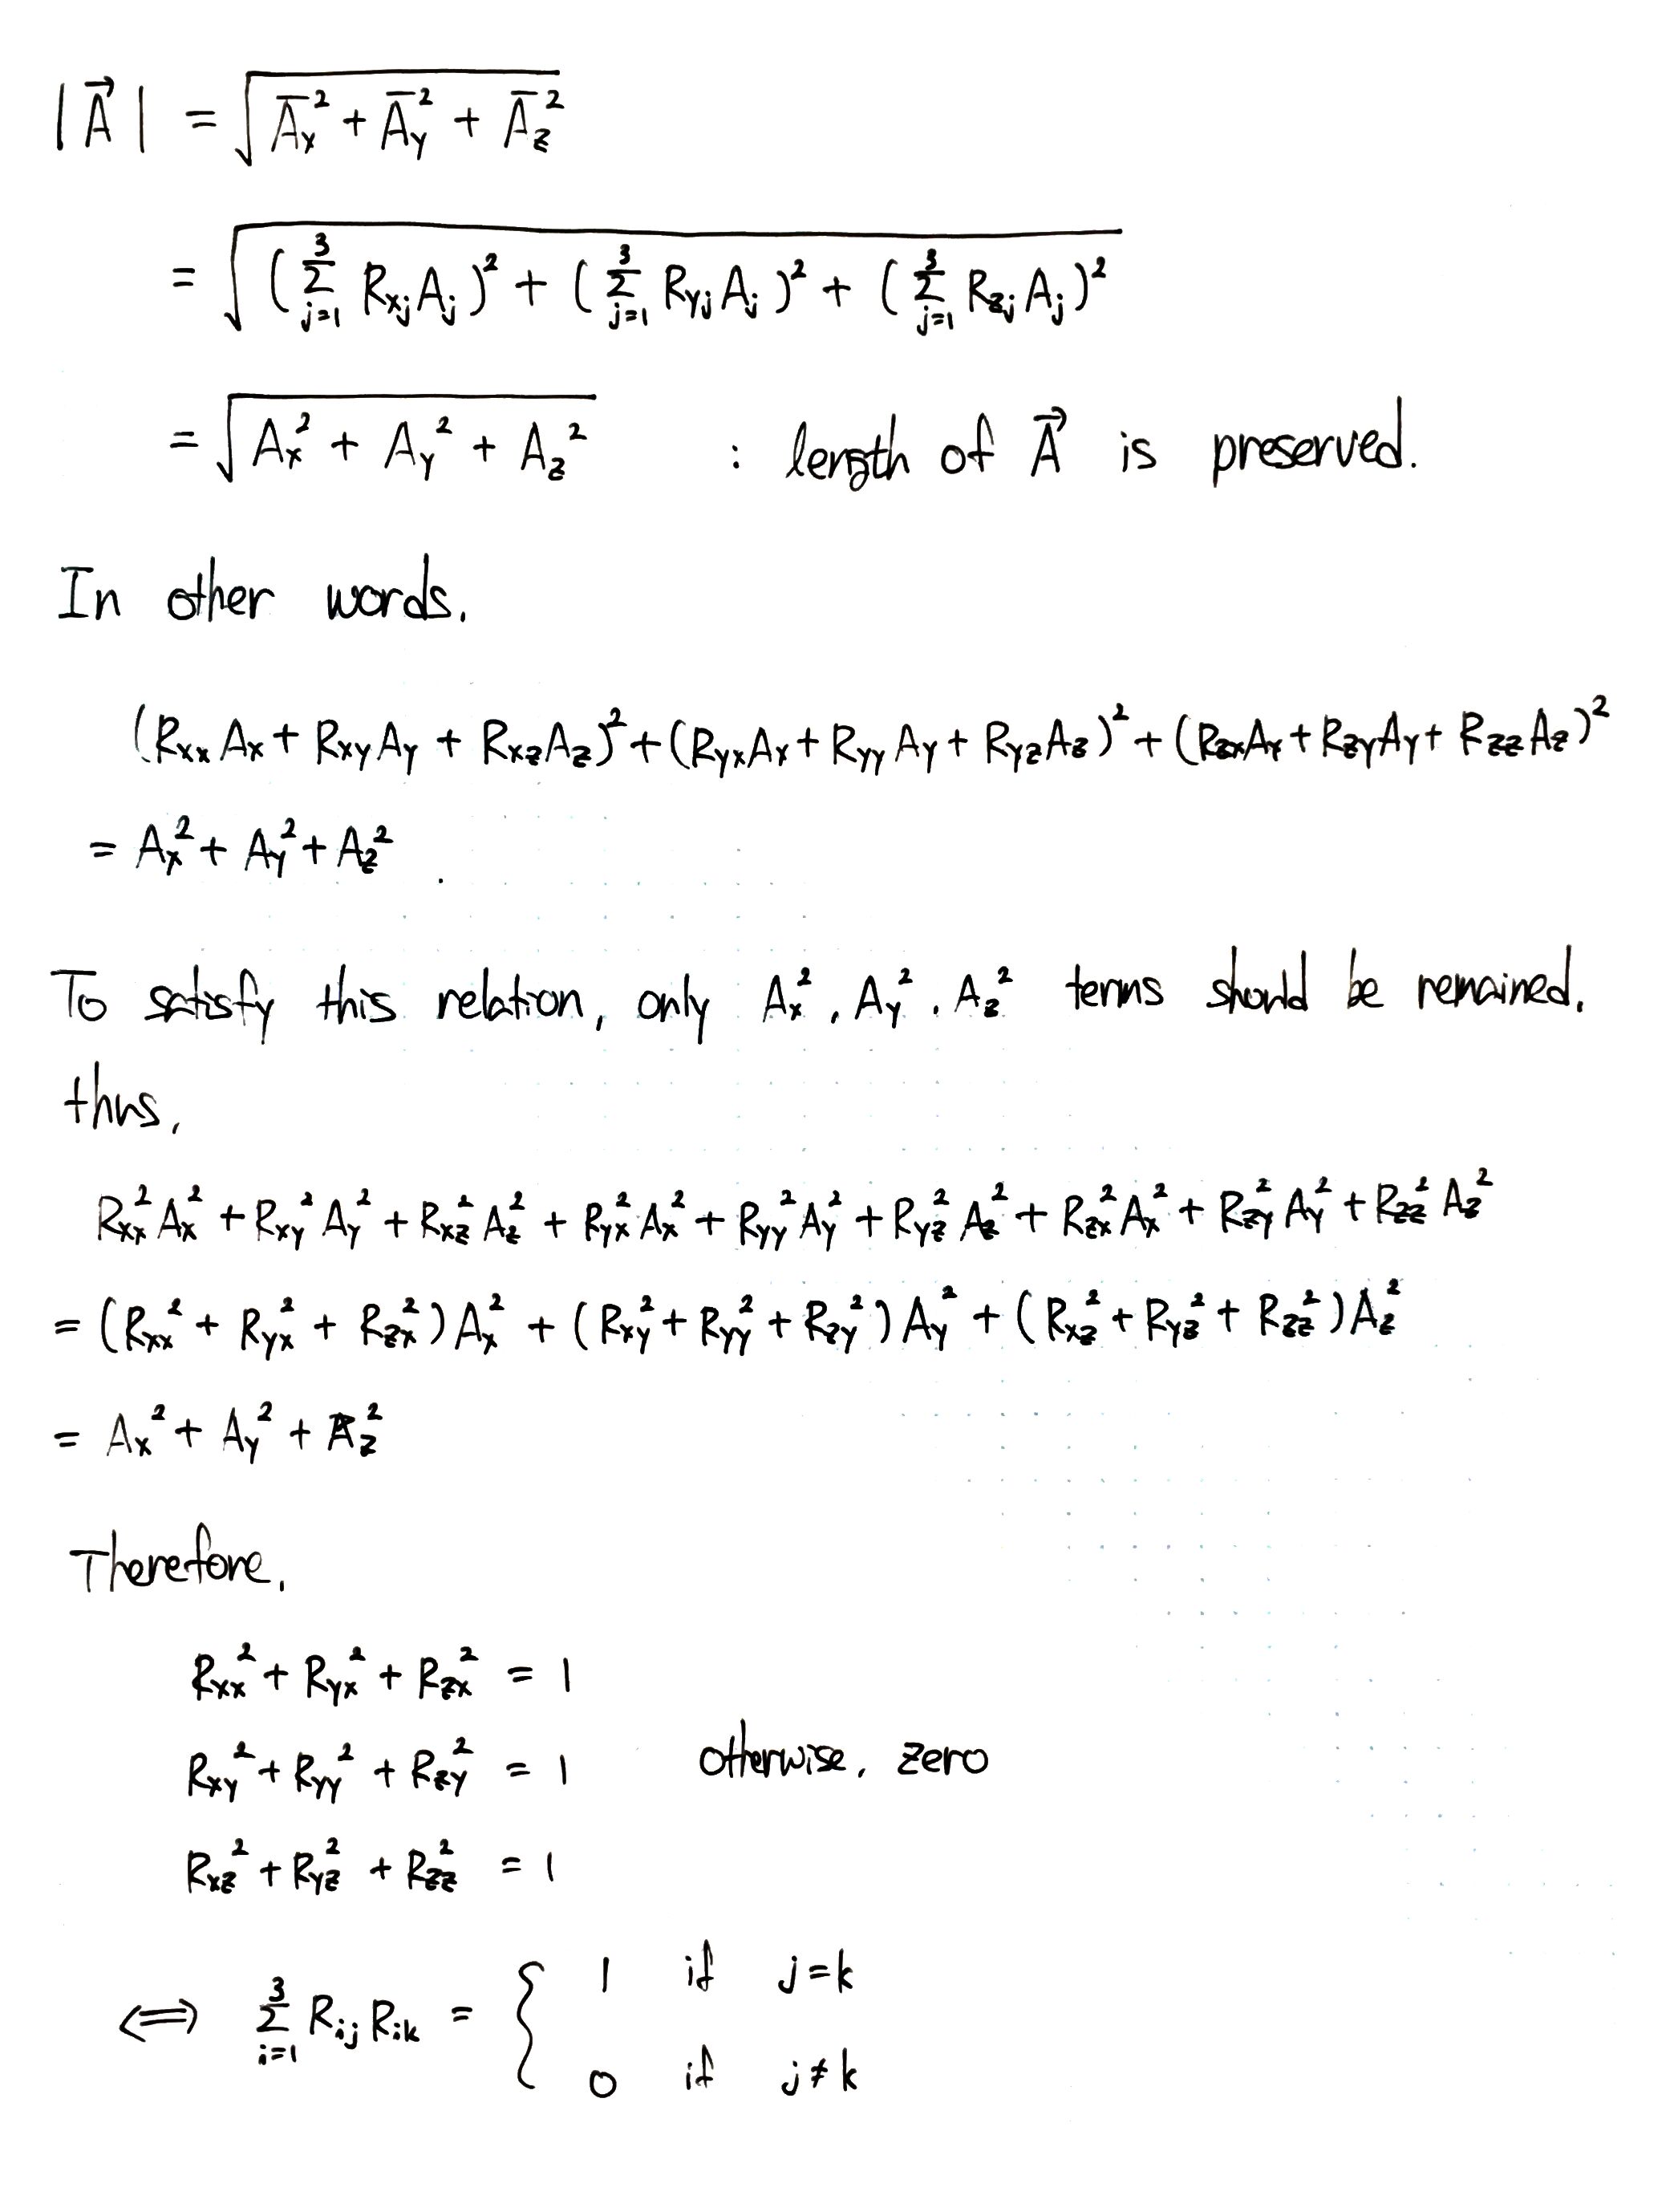 |A⃗| = √(A̅ₓ² + A̅ᵧ² + A̅_z²)
= √((Σ_{j=1}^{3} R_{xj} A_j)² + (Σ_{j=1}^{3} R_{yj} A_j)² + (Σ_{j=1}^{3} R_{zj} A_j)²)
= √(A_x² + A_y² + A_z²) : length of A⃗ is preserved.
In other words,
(R_{xx} A_x + R_{xy} A_y + R_{xz} A_z)² + (R_{yx} A_x + R_{yy} A_y + R_{yz} A_z)² + (R_{zx} A_x + R_{zy} A_y + R_{zz} A_z)²
= A_x² + A_y² + A_z² .
To satisfy this relation, only A_x², A_y², A_z² terms should be remained.
thus,
R_{xx}² A_x² + R_{xy}² A_y² + R_{xz}² A_z² + R_{yx}² A_x² + R_{yy}² A_y² + R_{yz}² A_z² + R_{zx}² A_x² + R_{zy}² A_y² + R_{zz}² A_z²
= (R_{xx}² + R_{yx}² + R_{zx}²) A_x² + (R_{xy}² + R_{yy}² + R_{zy}²) A_y² + (R_{xz}² + R_{yz}² + R_{zz}²) A_z²
= A_x² + A_y² + A_z²
Therefore,
R_{xx}² + R_{yx}² + R_{zx}² = 1
R_{xy}² + R_{yy}² + R_{zy}² = 1 otherwise, zero
R_{xz}² + R_{yz}² + R_{zz}² = 1
⟺ Σ_{i=1}^{3} R_{ij} R_{ik} = { 1 if j=k
0 if j≠k